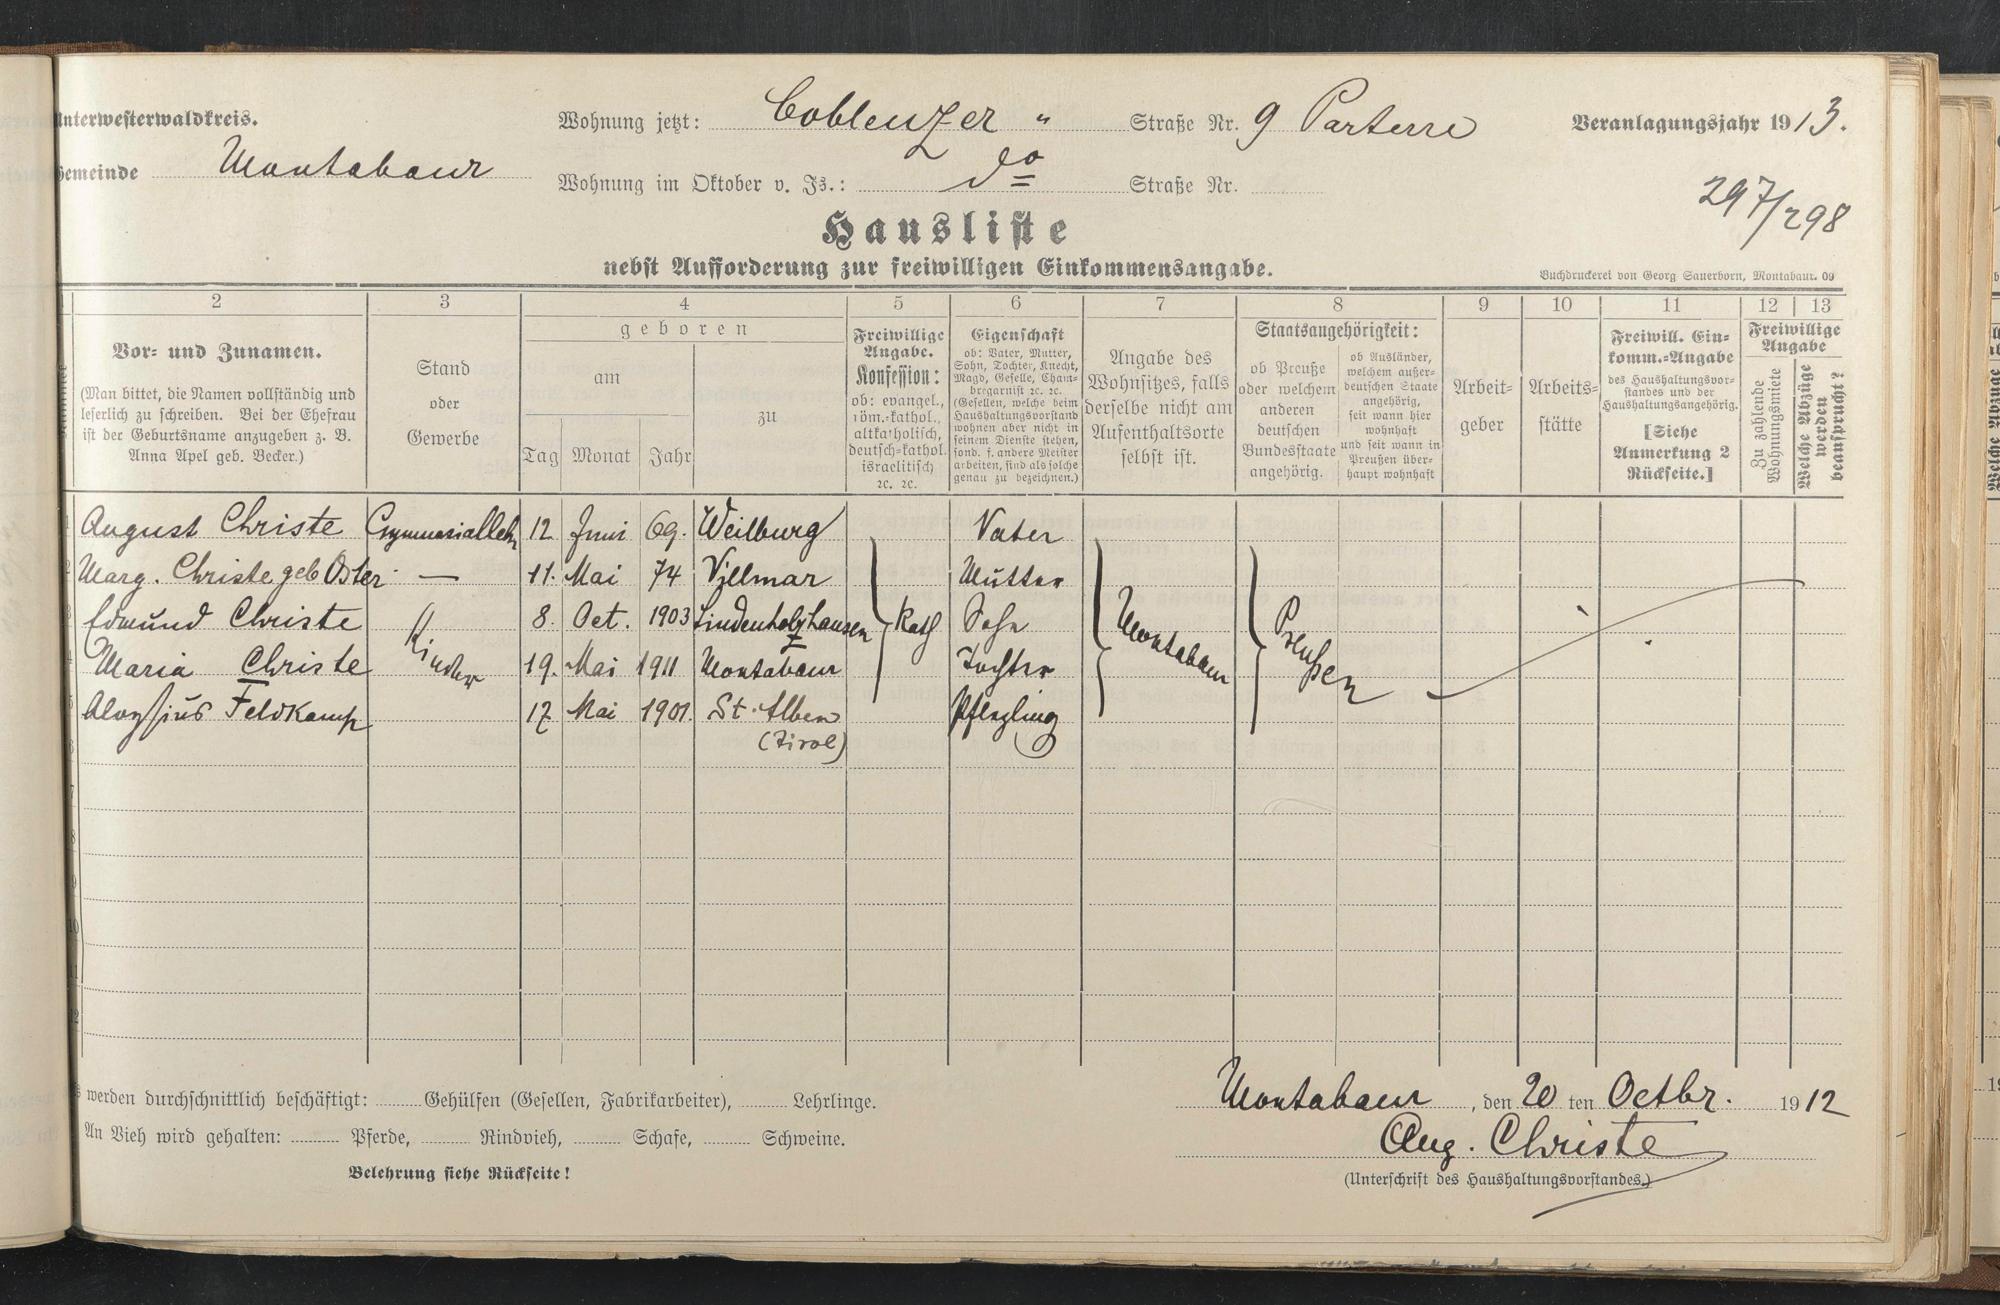 Unterwesterwaldkreis.
Wohnung jetzt: Coblenzer " Straße Nr. 9 Parterre
Veranlagungsjahr 1913.
Gemeinde Montabaur
Wohnung im Oktober v. Js.: do Straße Nr.
297/298
Hausliste
nebst Aufforderung zur freiwilligen Einkommensangabe.
Buchdruckerei von Georg Sauerborn, Montabaur. 09
2 3 4 5 6 7 8 9 10 11 12 13
Vor- und Zunamen.
(Man bittet, die Namen vollständig und
leserlich zu schreiben. Bei der Ehefrau
ist der Geburtsname anzugeben z. B.
Anna Apel geb. Becker.)
Stand
oder
Gewerbe
geboren
am
zu
Tag Monat Jahr
Freiwillige
Angabe.
Konfession:
ob: evangel.,
röm.-kathol.,
altkatholisch,
deutsch-kathol.
israelitisch
2c. 2c.
Eigenschaft
ob: Vater, Mutter,
Sohn, Tochter, Knecht,
Magd, Geselle, Cham-
bregarnist 2c. 2c.
(Gesellen, welche beim
Haushaltungsvorstand
wohnen aber nicht in
seinem Dienste stehen,
sond. f. andere Meister
arbeiten, sind als solche
genau zu bezeichnen.)
Angabe des
Wohnsitzes, falls
derselbe nicht am
Aufenthaltsorte
selbst ist.
Staatsangehörigkeit:
ob Preuße
oder welchem
anderen
deutschen
Bundesstaate
angehörig.
ob Ausländer,
welchem außer-
deutschen Staate
angehörig,
seit wann hier
wohnhaft
und seit wann in
Preußen über-
haupt wohnhaft
Arbeit-
geber
Arbeits-
stätte
Freiwill. Ein-
komm.-Angabe
des Haushaltungsvor-
standes und der
Haushaltungsangehörig.
[Siehe
Anmerkung 2
Rückseite.]
Freiwillige
Angabe
Zu zahlende
Wohnungsmiete
Welche Abzüge
werden
beansprucht?
August Christe Gymnasiallehr 12 Juni 69. Weilburg Vater
Marg. Christe geb Oster — 11. Mai 74 Villmar Mutter
Edmund Christe Kinder 8. Oct. 1903 Lindenholzhausen kath Sohn Montabaur Preußen
Maria Christe 19. Mai 1911 Montabaur Tochter
Aloysius Feldkamp 17 Mai 1901. St. Alben Pflegling
(Tirol)
werden durchschnittlich beschäftigt: Gehülfen (Gesellen, Fabrikarbeiter), Lehrlinge.
An Vieh wird gehalten: Pferde, Rindvieh, Schafe, Schweine.
Belehrung siehe Rückseite!
Montabaur, den 20 ten Octbr. 1912
Aug. Christe
(Unterschrift des Haushaltungsvorstandes.)